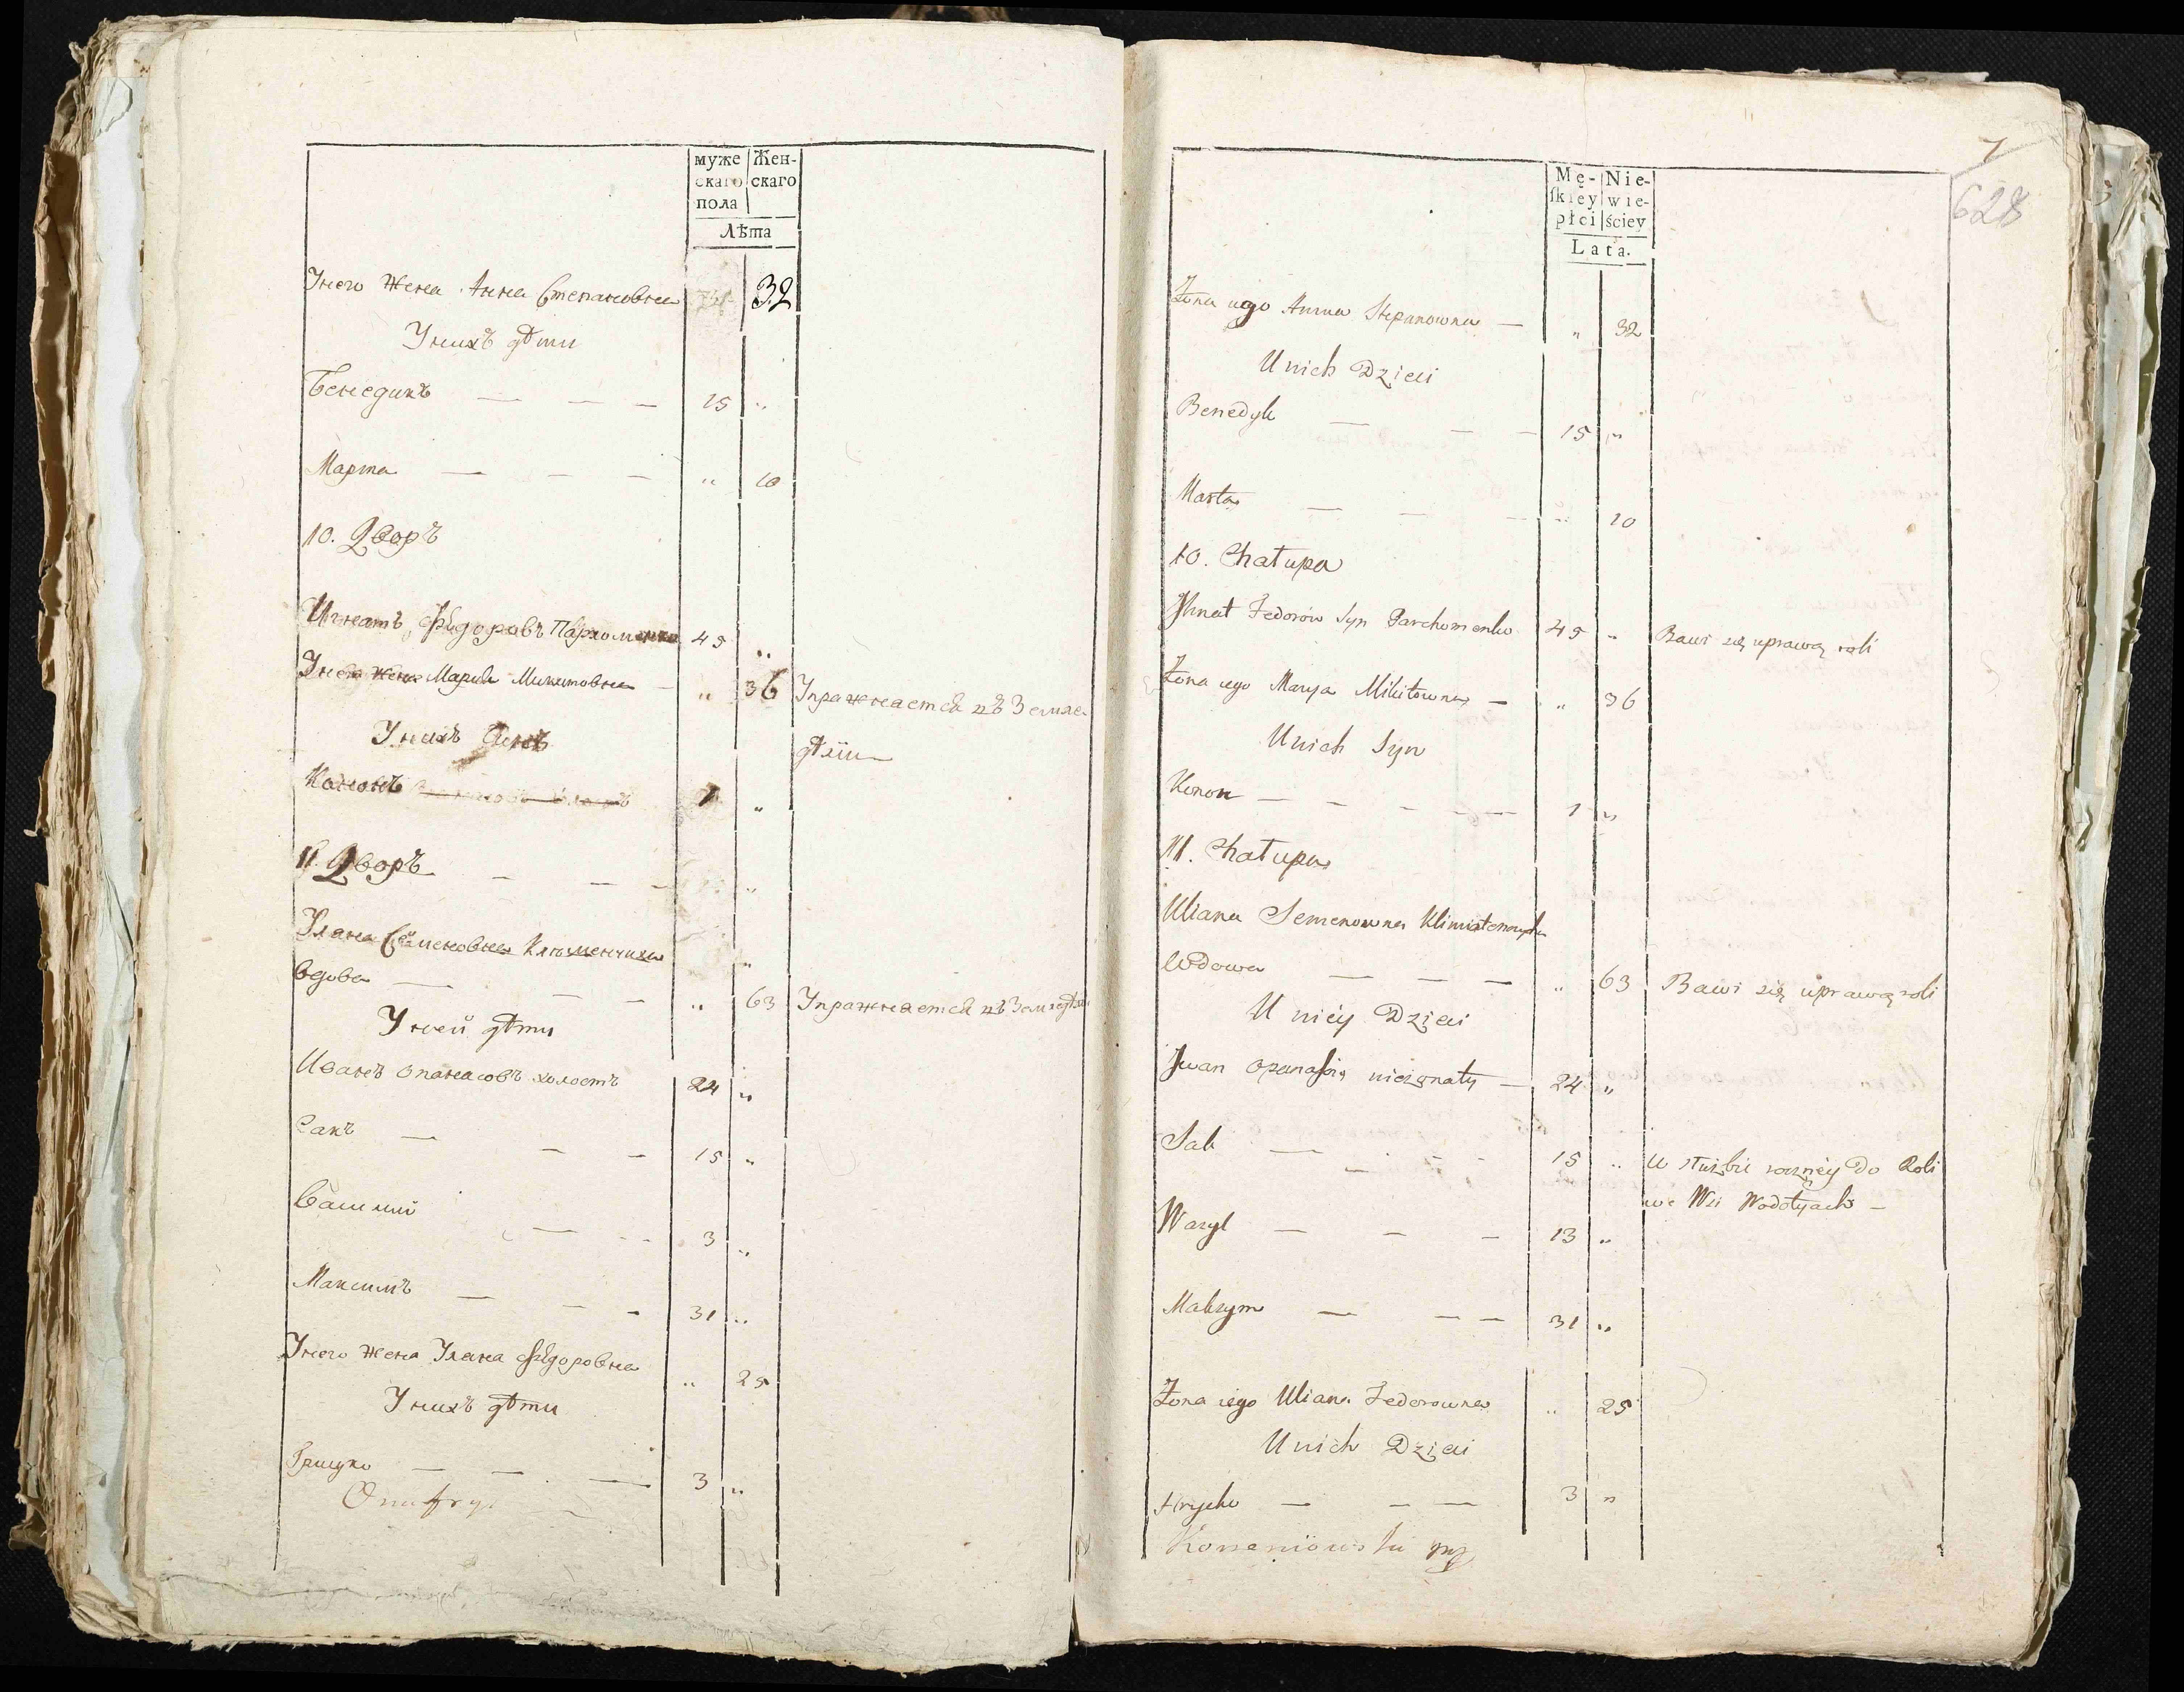 муже Жен-
скаго скаго
пола
Лѣта
Унего Жена Анна Степановна 32
Унихъ дѣти
Бенедикъ — — — 15 „
Марта — — — „ 10
10. Дворъ
Игнатъ Фёдоровъ Пархоменко 45 „
Унего Жена Мария Микитовна — „ 36 Упражнается въ Земле
Унихъ Сынъ дѣлiи
Кононъ 1 „
11. Дворъ — — — „
Улана Семеновна Клыменчиха „
вдова — — — „ 63 Упражнается въ Земледѣлi
Уней дѣти
Иванъ Опанасовъ холостъ 24 „
Сакъ — — — 15 „
Василий — — - 3 „
Максимъ — — — 31 „
Унего Жена Улана Фёдоровна „ 25
Унихъ дѣти
Грицко — — — 3 „
Onufry
7
628
Mę- Nie-
ſkiey wie-
płci ściey
Lata.
Żona iego Anna Stepanowna — „ 32
U nich Dzieci
Benedyk — — — 15 „
Marta — — — „ 10
10. Chałupa
Ihnat Fedorów Syn Parchomenko 45 „ Bawi się uprawą roli
Żona iego Marya Mikitowna — „ 36
U nich Syn
Konon — — — — 1 „
11. Chałupa
Uliana Semenowna
Wdowa — — — „ 63 Bawi się uprawą roli
U niéy Dzieci
Iwan nieżonaty — 24 „
Sak — — — 15 „ W służbie rocznéy Do Roli
we Wsi Wodotyach —
Wasyl — — — 13 „
Maksym — — — 31 „
Żona iego Uliana Fedorowna „ 25
U nich Dzieci
Hryćko — — — 3 „
Korzeniowski